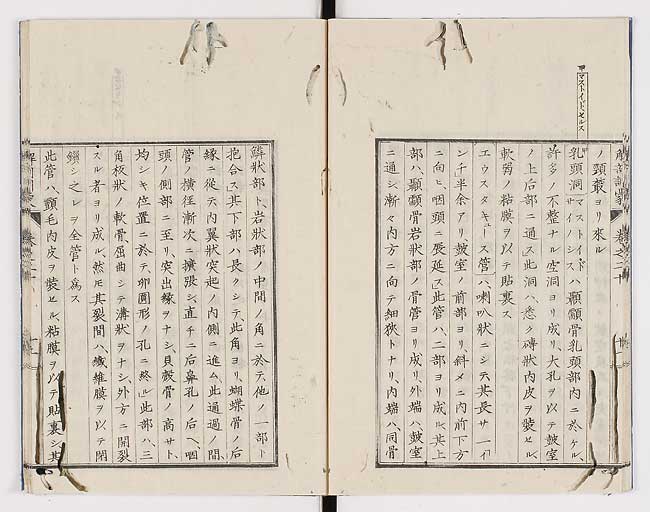 甲 マストイド、セルス
ノ頸叢ヨリ來ル
乳頭洞マストイドサイノシスハ顳顬骨乳頭部内ニ於ケル、
許多ノ不整ナル空洞ヨリ成リ大孔ヲ以テ皷室
ノ上后部ニ通ス此洞ハ、悉ク磚狀内皮ヲ裝セル、
軟弱ノ粘膜ヲ以テ貼裏ス
エウスタキュース管ハ、喇叭狀ニシテ其長サ一イ
ンチ半余アリ皷室ノ前部ヨリ、斜メニ内前下方
ニ向ヒ、咽頭ニ展延ス此管ハ、二部ヨリ成ル、其上
部ハ、顳顬骨岩狀部ノ骨管ヨリ成リ、外端ハ、皷室
ニ通シ、漸々内方ニ向テ細狹トナリ、内端ハ、同骨
鱗狀部ト、岩狀部ノ中間ノ角ニ於テ、他ノ一部ト
抱合ス其下部ハ長クシテ、此角ヨリ、蝴蝶骨ノ后
縁ニ從テ、内翼狀突起ノ内側ニ進ム、此通過ノ間、
管ノ横徑漸次ニ擴張シ、直チニ后鼻孔ノ后ヘ、咽
頭ノ側部ニ至リ、突出縁ヲナシ、貝殻骨ノ高サト、
均シキ位置ニ於テ、卵圓形ノ孔ニ終ル此部ハ、三
角板狀ノ軟骨、屈曲シテ溝狀ヲナシ、外方ニ開裂
スル者ヨリ成ル、然𪜈其裂間ハ、纎維膜ヲ以テ閉
鎖シ之レヲ全管ト爲ス
此管ハ、顫毛内皮ヲ裝セル、粘膜ヲ以テ貼裏シ、其